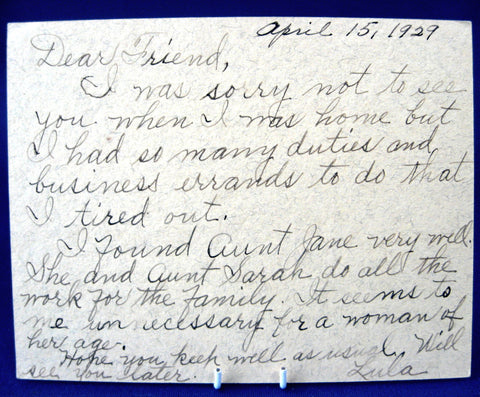 April 15, 1929
Dear Friend,
I was sorry not to see
you when I was home but
I had so many duties and
business errands to do that
I tired out.
I found Aunt Jane very well.
She and Aunt Sarah do all the
work for the family. It seems to
me unnecessary for a woman of
her age.
Hope you keep well as usual. Will
see you later. Lula